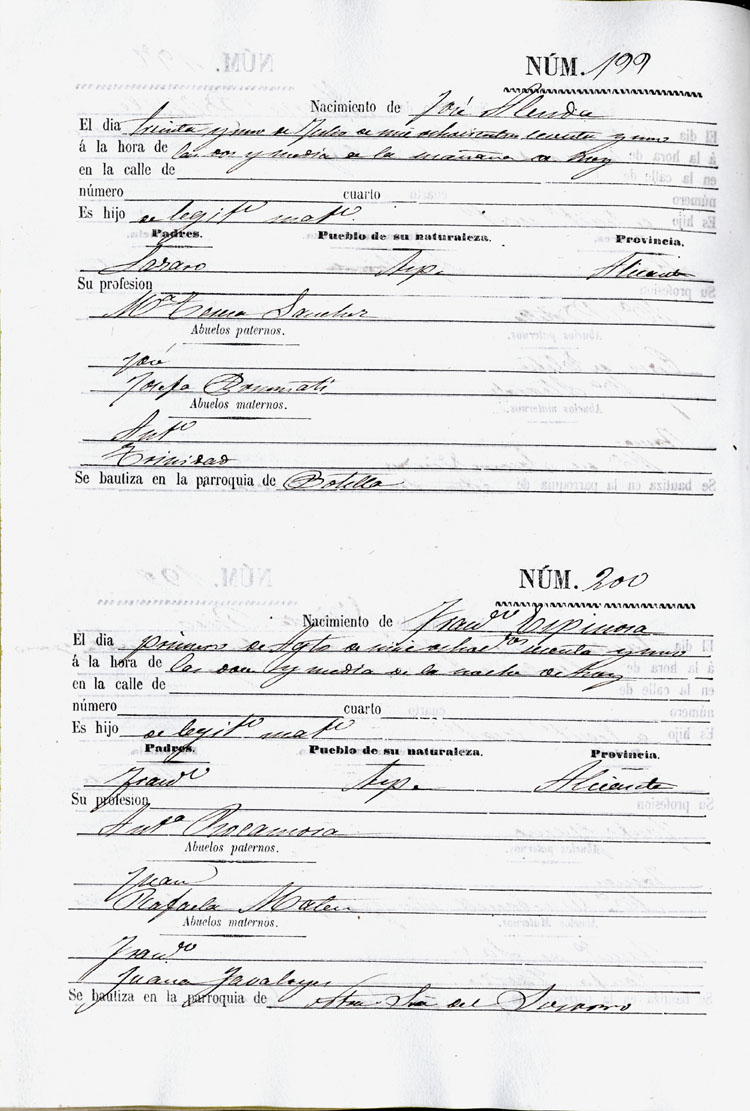 NÚM. 199
Nacimiento de José Alenda
El dia treinta y uno de Julio de mil ochocientos y uno
á la hora de las y media de la mañana de hoy
en la calle de
número cuarto
Es hijo de legitº matº
Padres. Pueblo de su naturaleza. Provincia.
Lazaro Asp.e Alicante
Su profesion
Mª Teresa Sanchez
Abuelos paternos.
José
Josefa Bonmati
Abuelos maternos.
Antº
Trinidad
Se bautiza en la parroquia de Botella
NÚM. 200
Nacimiento de Francº Espinosa
El dia primero de Agto de mil y uno
á la hora de las doce y media de la noche de hoy
en la calle de
número cuarto
Es hijo de legitº matº
Padres. Pueblo de su naturaleza. Provincia.
Francº Asp.e Alicante
Su profesion
Antª Rocamora
Abuelos paternos.
Juan
Rafaela Mateu
Abuelos maternos.
Francº
Juana Javaloyes
Se bautiza en la parroquia de Ntra Sra del Socorro